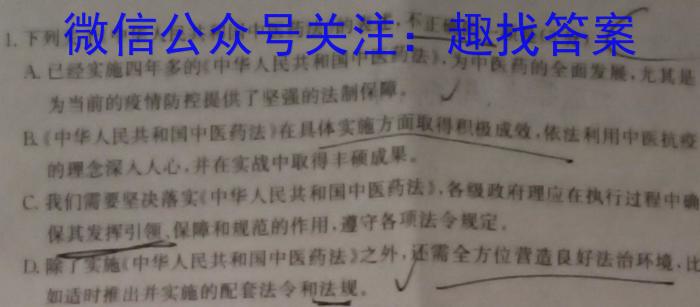 微信公众号关注：趣找答案
1. 下列 不正
A. 已经实施四年多的《中华人民共和国中医药法》,为中医药的全面发展,尤其是
为当前的疫情防控提供了坚强的法制保障。
B.《中华人民共和国中医药法》在具体实施方面取得积极成效,依法利用中医抗疫
的理念深入人心,并在实战中取得丰硕成果。
C. 我们需要坚决落实《中华人民共和国中医药法》,各级政府理应在执行过程中确
保其发挥引领、保障和规范的作用,遵守各项法令规定。
D. 除了实施《中华人民共和国中医药法》之外,还需全方位营造良好法治环境,比
如适时推出并实施的配套法令和法规。